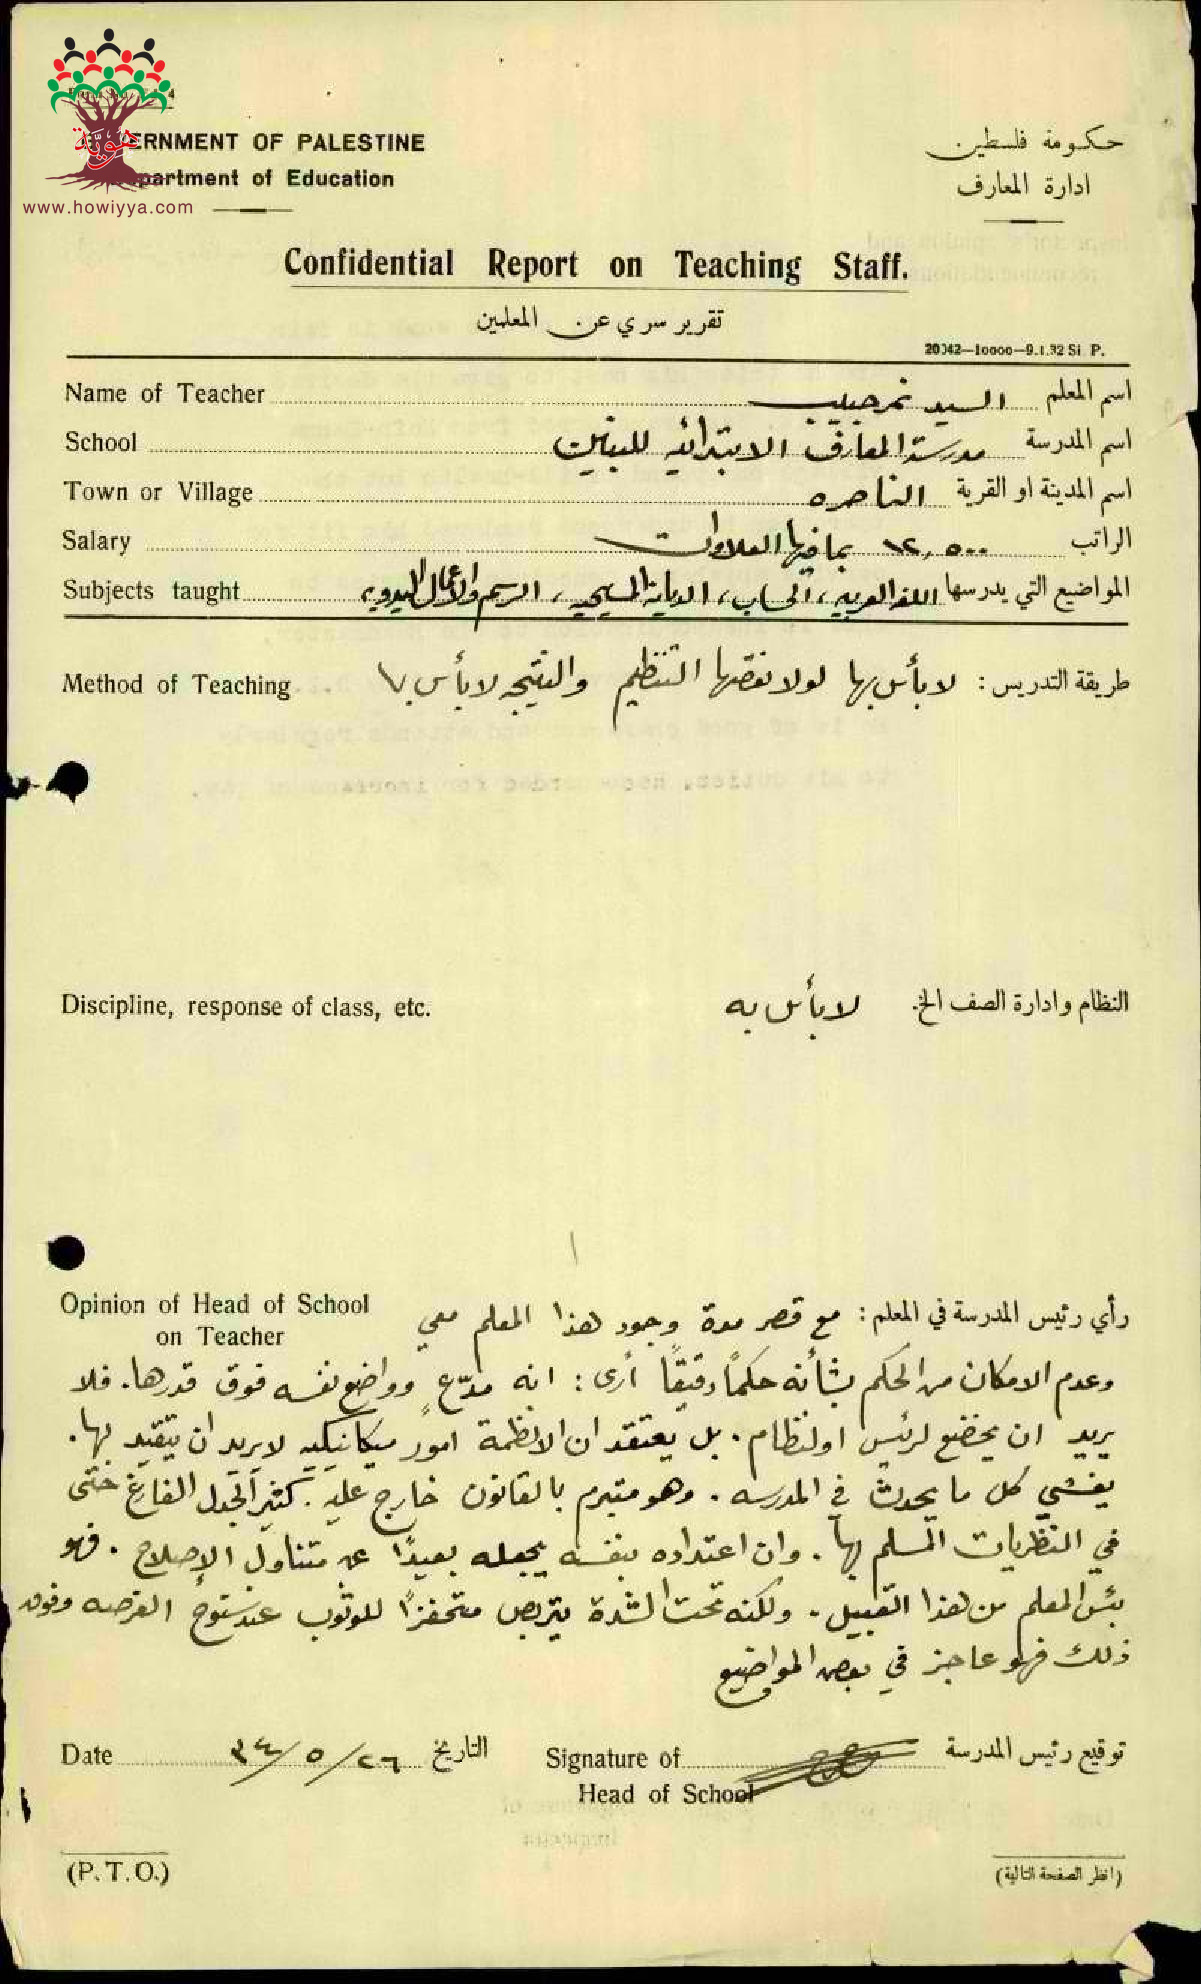 هوية
www.howiyya.com
GOVERNMENT OF PALESTINE
حكومة فلسطين
Department of Education
ادارة المعارف
Confidential Report on Teaching Staff.
تقرير سري عن المعلمين
20042—10000—9.1.32 Si P.
Name of Teacher السيد نمر حبيب اسم المعلم
School مدرسة المعارف الابتدائيه للبنين اسم المدرسة
Town or Village الناصره اسم المدينة او القرية
Salary ١٢,٥٠٠ بما فيها العلاوات الراتب
Subjects taught اللغه العربيه، الحساب، الديانة المسيحيه، الرسم والاعمال اليدويه المواضيع التي يدرسها
Method of Teaching طريقة التدريس: لا بأس بها لولا نقصها التنظيم والنتيجه لا بأس بها
Discipline, response of class, etc. النظام وادارة الصف الخ. لا بأس به
Opinion of Head of School
on Teacher
رأي رئيس المدرسة في المعلم: مع قصر مدة وجود هذا المعلم معي
وعدم الامكان من الحكم بشأنه حكمًا دقيقًا أرى: انه مدّعٍ وواضع نفسه فوق قدرها. فلا
يريد ان يخضع لرئيس او لنظام. بل يعتقد ان الانظمة امور ميكانيكيه لا يريد ان يتقيد بها.
يفشي كل ما يحدث في المدرسه. وهو متبرم بالقانون خارج عليه. كثير الجدل الفارغ حتى
في النظريات المسلم بها. وان اعتداده بنفسه يجعله بعيدًا عن متناول الإصلاح. فهو
بئس المعلم من هذا القبيل. ولكنه تحت الشدة يتربص متحفزًا للوثوب عند سنوح الفرصه وفوق
ذلك فهو عاجز في بعض المواضيع
Date ٢٦/٥/٣٤ التاريخ
Signature of
Head of School
توقيع رئيس المدرسة
(P.T.O.)
(انظر الصفحة التالية)